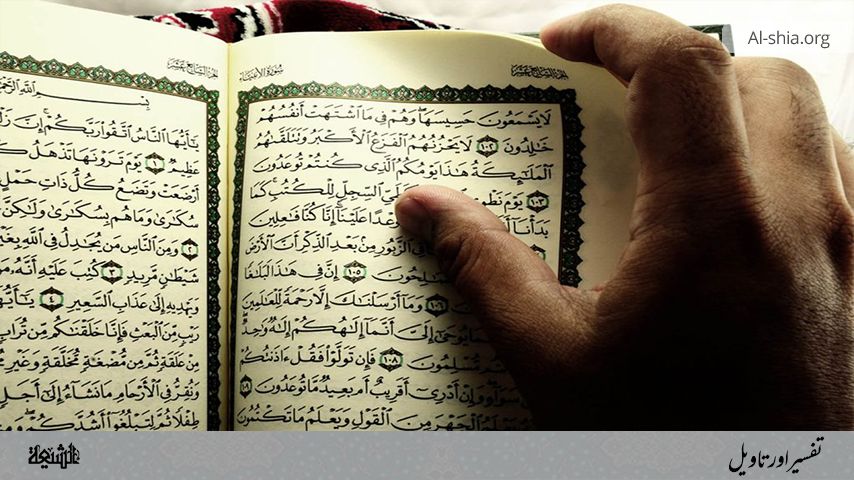 Al-shia.org
الجزء السابع عشر
سُورَةُ الأَنبِيَاء
لَا يَسْمَعُونَ حَسِيسَهَا وَهُمْ فِي مَا ٱشْتَهَتْ أَنفُسُهُمْ
خَٰلِدُونَ ١٠٢ لَا يَحْزُنُهُمُ ٱلْفَزَعُ ٱلْأَكْبَرُ وَتَتَلَقَّىٰهُمُ
ٱلْمَلَٰٓئِكَةُ هَٰذَا يَوْمُكُمُ ٱلَّذِي كُنتُمْ تُوعَدُونَ
١٠٣ يَوْمَ نَطْوِي ٱلسِّجِلِّ لِلْكُتُبِ كَمَا
بَدَأْنَآ وَعْدًا عَلَيْنَآ إِنَّا كُنَّا فَٰعِلِينَ
ٱلزَّبُورِ مِنۢ بَعْدِ ٱلذِّكْرِ أَنَّ ٱلْأَرْضَ
١٠٥ إِنَّ فِي هَٰذَا لَبَلَٰغًا
وَمَآ أَرْسَلْنَٰكَ إِلَّا رَحْمَةً لِّلْعَٰلَمِينَ
يُوحَىٰٓ إِلَيَّ أَنَّمَآ إِلَٰهُكُمْ إِلَٰهٌ وَٰحِدٌ
مُّسْلِمُونَ ١٠٨ فَإِن تَوَلَّوْا۟ فَقُلْ ءَاذَنتُكُمْ
سَوَآءٍ وَإِنْ أَدْرِيٓ أَقَرِيبٌ أَم بَعِيدٌ مَّا تُوعَدُونَ ١٠٩
ٱلْجَهْرَ مِنَ ٱلْقَوْلِ وَيَعْلَمُ مَا تَكْتُمُونَ
الجزء السابع عشر
بِسْمِ ٱللَّهِ
يَٰٓأَيُّهَا ٱلنَّاسُ ٱتَّقُوا۟ رَبَّكُمْ إِنَّ
عَظِيمٌ ١ يَوْمَ تَرَوْنَهَا تَذْهَلُ
أَرْضَعَتْ وَتَضَعُ كُلُّ ذَاتِ حَمْلٍ
سُكَٰرَىٰ وَمَا هُم بِسُكَٰرَىٰ وَلَٰكِنَّ
٢ وَمِنَ ٱلنَّاسِ مَن يُجَٰدِلُ فِي ٱللَّهِ بِغَيْرِ
شَيْطَٰنٍ مَّرِيدٍ ٣ كُتِبَ عَلَيْهِ أَنَّهُۥ
وَيَهْدِيهِ إِلَىٰ عَذَابِ ٱلسَّعِيرِ ٤ يَٰٓأَيُّهَا
رَيْبٍ مِّنَ ٱلْبَعْثِ فَإِنَّا خَلَقْنَٰكُم مِّن تُرَابٍ
مِنْ عَلَقَةٍ ثُمَّ مِن مُّضْغَةٍ مُّخَلَّقَةٍ وَغَيْرِ
وَنُقِرُّ فِي ٱلْأَرْحَامِ مَا نَشَآءُ إِلَىٰٓ أَجَلٍ
طِفْلًا ثُمَّ لِتَبْلُغُوٓا۟ أَشُدَّكُمْ
الشيعة
تفسیر اور تاویل